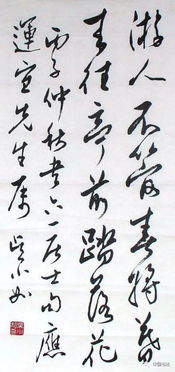 游人不管春将暮
来往亭前踏落花
丙子仲秋书六一居士句应
运宣先生属 吴小如